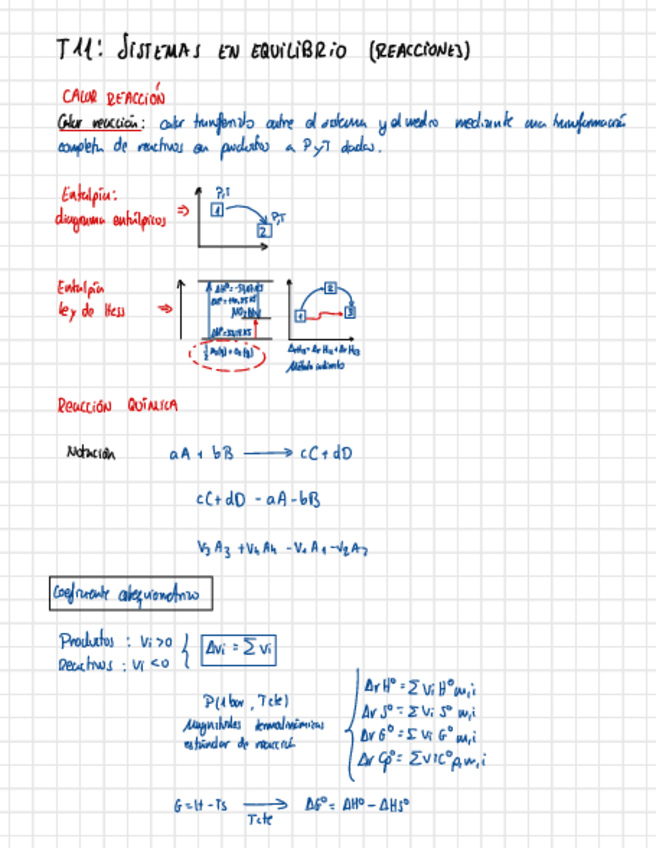 T11: SISTEMAS EN EQUILIBRIO (REACCIONES)
CALOR REACCIÓN
Calor reacción: calor transferido entre el sistema y el medio mediante una transformación
completa de reactivos en productos a P y T dadas.
Entalpía:
diagrama entálpicos ⇒
P,T
1
P,T
2
Entalpía
ley de Hess ⇒
1
2
3
Método indirecto
REACCIÓN QUÍMICA
Notación aA + bB ⟶ cC + dD
cC + dD - aA - bB
V3 A3 + V4 A4 - V1 A1 - V2 A2
Coeficiente estequiométrico
Productos : Vi > 0
Reactivos : Vi < 0
Δvi = Σ vi
P (1 bar, T cte)
Magnitudes termodinámicas
estándar de reacción
Δr H° = Σ Vi H° m,i
Δr S° = Σ Vi S° m,i
Δr G° = Σ Vi G° m,i
Δr Cp° = Σ Vi C° p,m,i
G = H - TS ⟶ ΔG° = ΔH° - ΔHS°
T cte